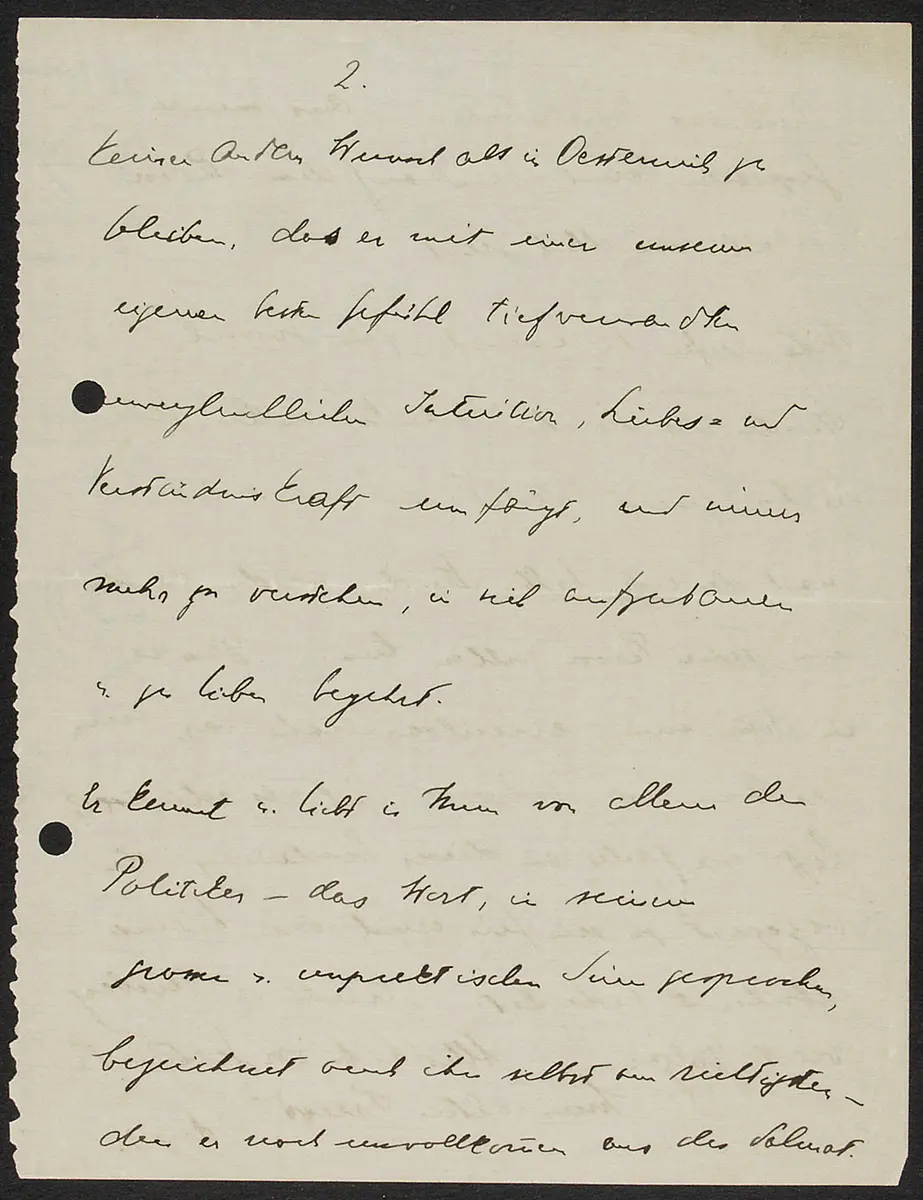 2.
keinen andern Wunsch als in Oesterreich zu
bleiben, das er mit einer unserem
eigenen besten Gefühl tiefverwandten
unvergleichlichen Intuition, Liebes= und
Verständniskraft umfängt, und immer
mehr zu verstehen, in sich aufzubauen
u. zu lieben begehrt.
Er kennt u. liebt in Ihnen vor allem den
Politiker – das Wort, in seinem
grossen u. unpraktischen Sinn gesprochen,
bezeichnet auch ihn selbst am richtigsten –
den er noch unvollkommen aus des